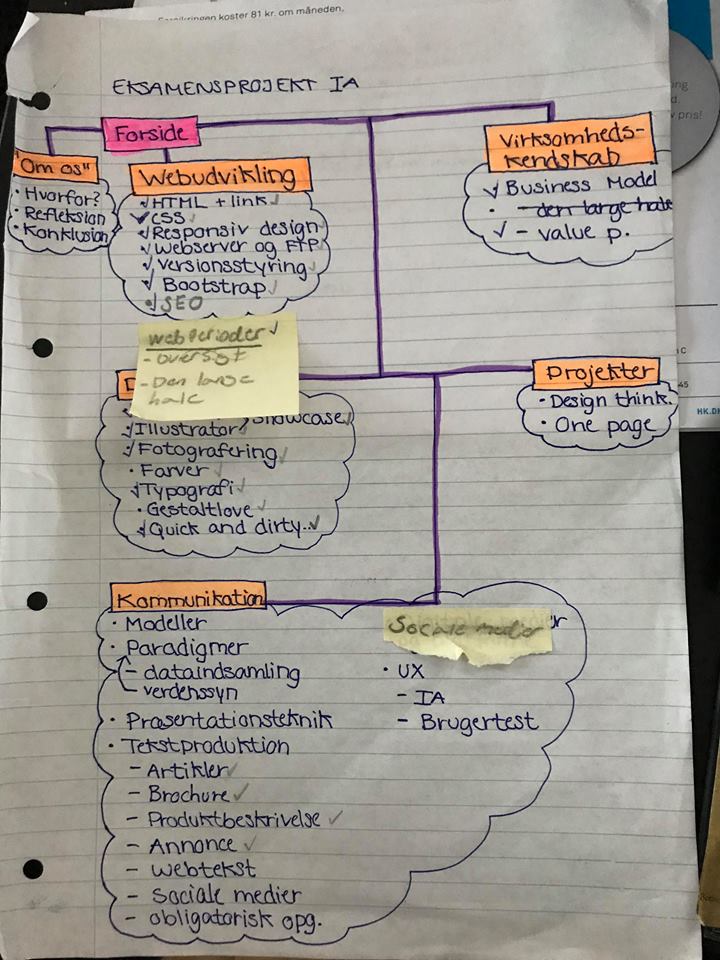 koster 81 kr. om måneden,
EKSAMENSPROJEKT IA
Forside
"Om os"
• Hvorfor?
• Refleksion
• Konklusion
Webudvikling
HTML + link
CSS
Responsiv design
Webserver og FTP
Versionsstyring
Bootstrap
SEO
webperioder
- oversigt
- Den lange
hale
Virksomheds-
kendskab
Business Model
• den lange hale
- value p.
pris!
45
HK.D
D
Illustrator Showcase
Fotografering
• Farver
Typografi
• Gestaltlove
Quick and dirty..
Projekter
• Design think.
• One page
Kommunikation
• Modeller
• Paradigmer
- dataindsamling
- verdenssyn
• Præsentationsteknik
• Tekstproduktion
- Artikler
- Brochure
- Produktbeskrivelse
- Annonce
- webtekst
- Sociale medier
- obligatorisk opg.
Sociale medier
• UX
- IA
- Brugertest